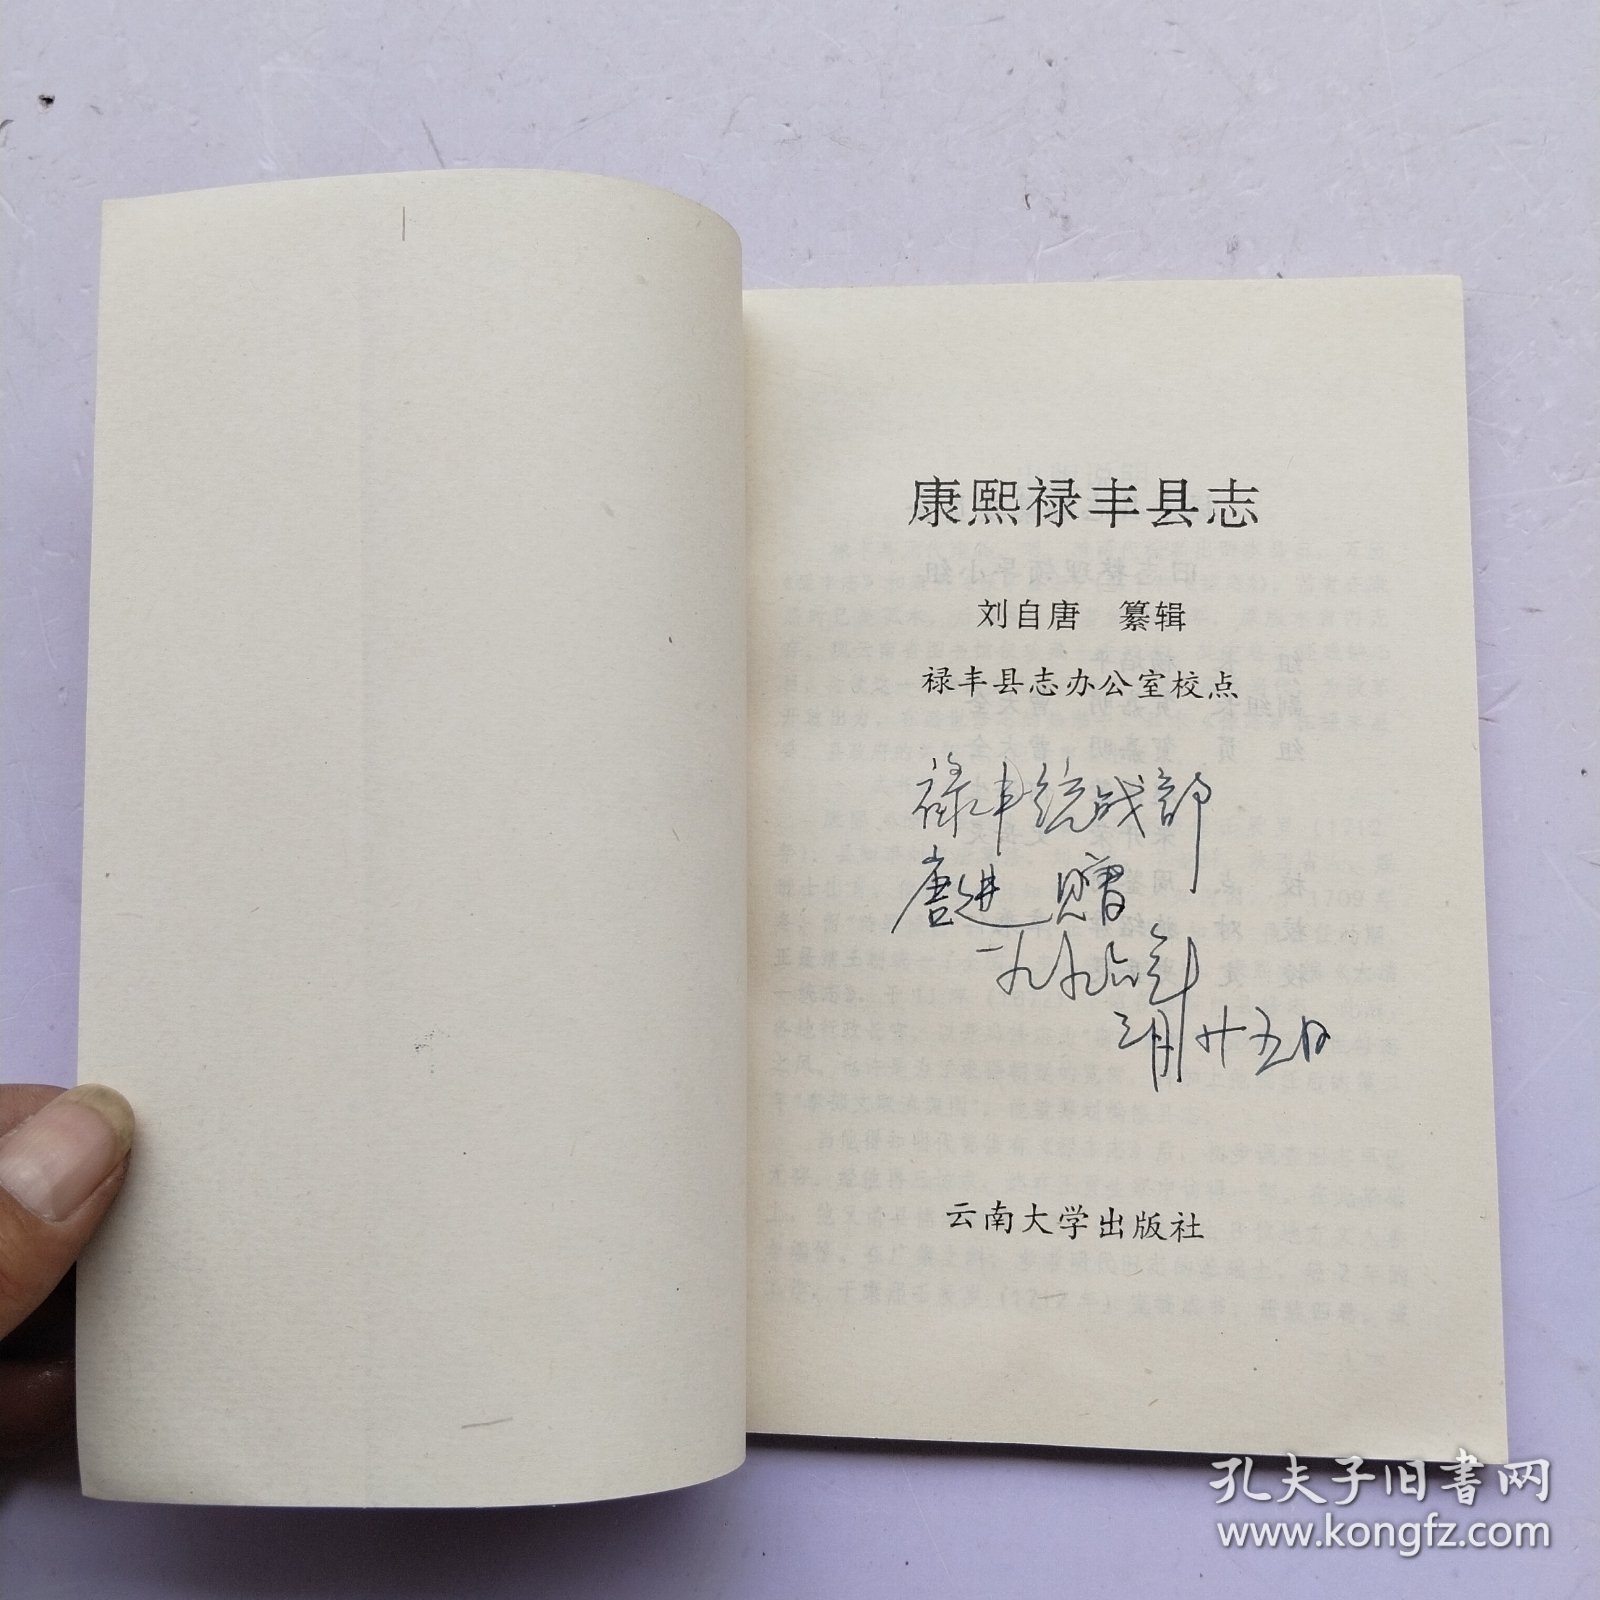 康熙禄丰县志
刘自唐 纂辑
禄丰县志办公室校点
禄丰统战部
唐进 赠
一九九六年
三月廿五日
云南大学出版社
孔夫子旧书网
www.kongfz.com